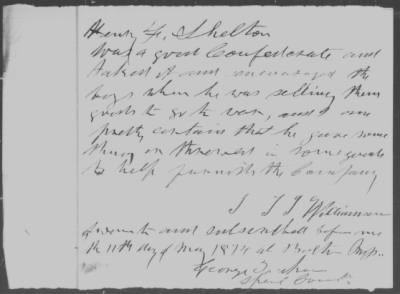 Henry F. Shelton
Was a good Confederate and
talked it and encouraged the
boys when he was selling them
goods to go to war, and I am
pretty certain that he gave some
thing or threwed in some goods
to help furnish the Company
J T J Williamson
Sworn to and subscribed before me
the 11th day of May 1874 at Bolton Miss.
George
Spec. Com.